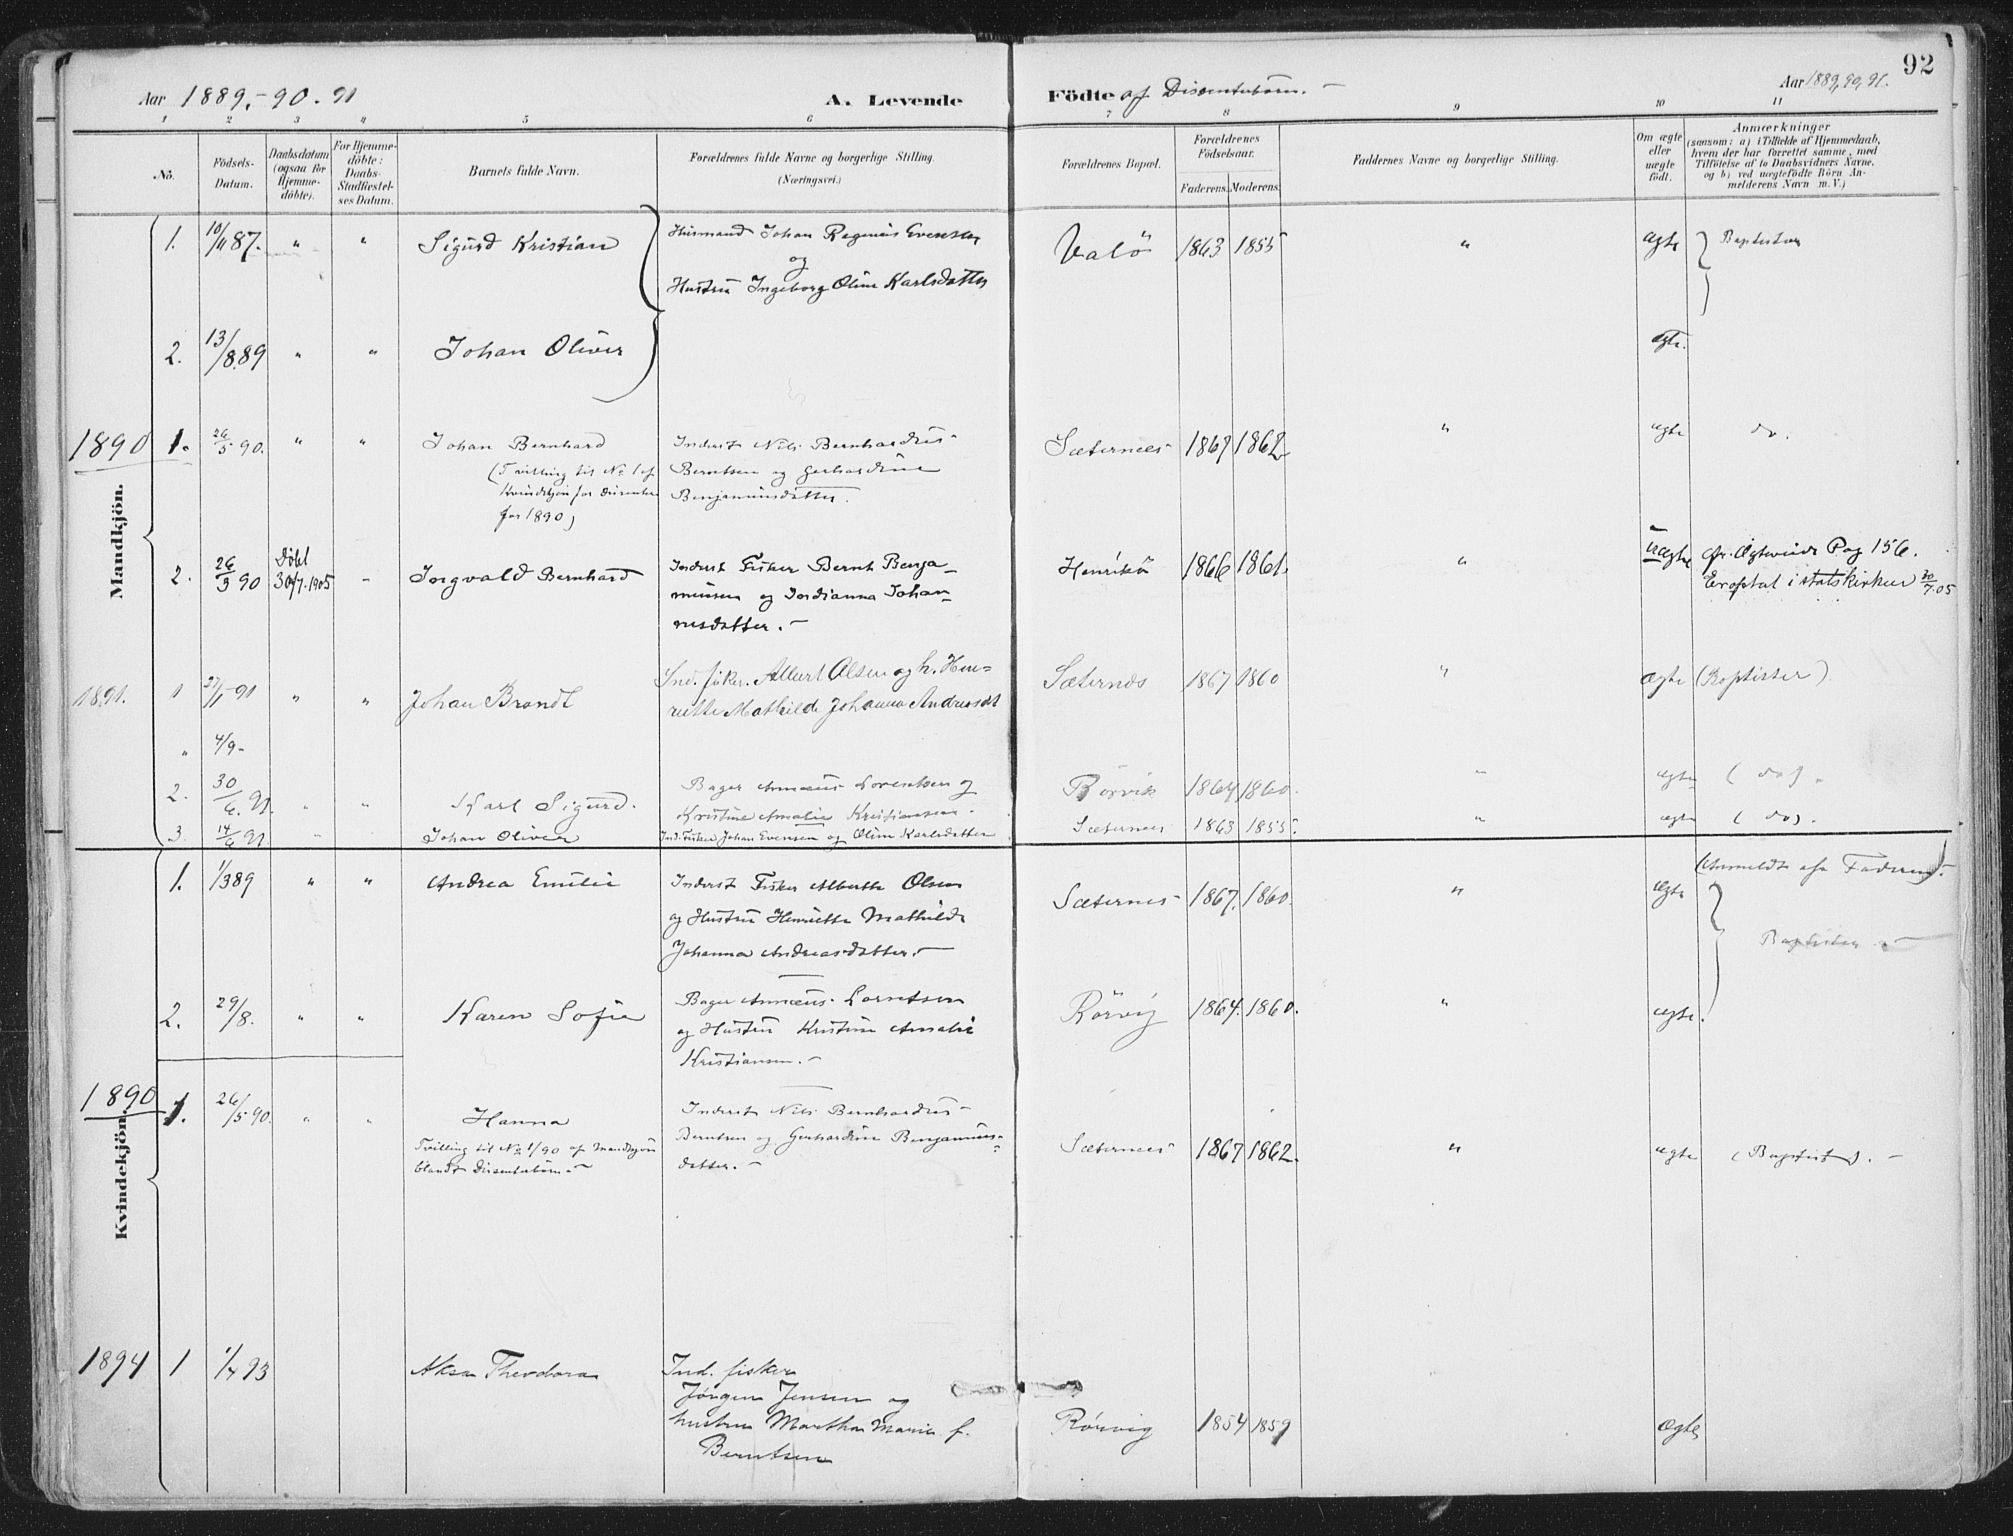 92
Aar 1889,-90.91
A. Levende Födte af Dissenterbørn.-
Aar 1889,90,91.
1 2 3 4 5 6 7 8 9 10 11
No.
Födsels-
Datum.
Daabsdatum
(ogsaa for
Hjemme-
döbte).
For Hjemme-
döbte:
Daabs-
Stadfæstel-
ses Datum.
Barnets fulde Navn.
Forældrenes fulde Navne og borgerlige Stilling.
(Næringsvei.)
Forældrenes Bopæl.
Forældrenes
Födselsaar.
Faderens. Moderens.
Faddernes Navne og borgerlige Stilling.
Om ægte
eller
uægte
födt.
Anmærkninger
(saasom: a) i Tilfælde af Hjemmedaab,
hvem der har forrettet samme, med
Tilföielse af to Daabsvidners Navne,
og b) ved uægtefödte Börn An-
melderens Navn m. V.)
Mandkjön.
1. 10/11 87. " " Sigurd Kristian
Husmand Johan Regenius Evensen
og
Hustru Ingeborg Oline Karlsdatter
Valö 1863 1855 " ægte Baptister
2. 13/8.89 " " Johan Oliver ægte.
1890 1. 26/5 90. " " Johan Bernhard
(Tvilling til No 1 af
Kvindekjön for Dissenter
for 1890)
Inderst Nils Bernhardus
Berntsen og Gerhardine
Benjaminsdatter.
Sæternes 1867 1862 " ægte do.
2. 26/3 90 Døbt
30/7.1905 - Ingvald Bernhard
Inderst Fisker Bernt Benja-
minsen og Jordianna Johan-
nesdatter.-
Henrikö 1866 1861. " Uægte
cfr. Ægteviede Pag 156.
Er optat i statskirken 30/7.05
1891. 1 27/1-91 " " Johan Brandt
Ind. fisker. Albert Olsen og h. Hen-
riette Mathilde Johanna Andreasdt
Sæternes 1867 1860 " ægte (Baptister)
" 4/9-
2. 30/6.91. " " Karl Sigurd.
Bager Annæus Lorentsen og
Kristine Amalie Kristiansen.
Rörvik 1864 1860. " ægte (do).
3. 14/6 91 " Johan Oliver
Ind. Fisker Johan Evensen og Oline Karlsdatter
Sæternes 1863 1855. " ægte (do).
Kvindekjön.
1. 1/3 89 " " Andrea Emilie
Inderst Fisker Alberth Olsen
og Hustru Henriette Mathilde
Johanna Andreasdatter.-
Sæternes 1867. 1860. " ægte
(Anmeldt af Faderen).
Baptister.-
2. 29/8. " " Karen Sofie
Bager Annæus Lorntsen
og Hustru Kristine Amalie
Kristiansen.-
Rörvig 1864. 1860. " ægte.
1890 1. 26/5 90. " " Hanna
Tvilling til No 1/90 af Mandkjön
blandt Dissenterbörn.-
Inderst Nils Bernhardus
Berntsen og Gerhardine Benjamins-
datter.-
Sæternes 1867 1862. " ægte (Baptist). -
1894 1 1/4 93 Aksa Theodora
Ind. fisker
Jørgen Jensen og
hustru Martha Marie f.
Berntsen
Rørvig 1854 1859 ægte